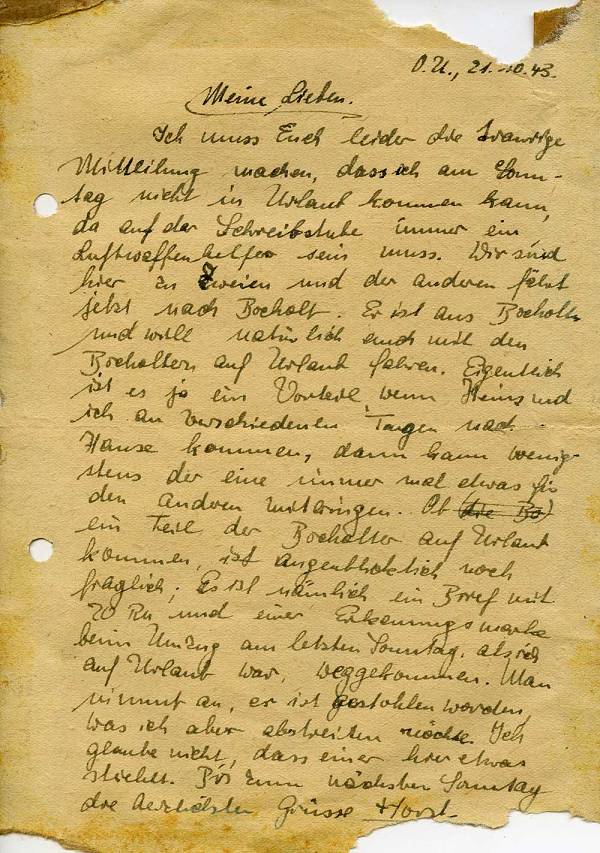 O.U., 21. 10. 43.
Meine Lieben.
Ich muss Euch leider die traurige
Mitteilung machen, dass ich am Sonn-
tag nicht in Urlaub kommen kann,
da auf der Schreibstube immer ein
Luftwaffenhelfer sein muss. Wir sind
hier zu zweien und der anderen fährt
jetzt nach Bocholt. Er ist aus Bocholt
und will natürlich auch mit den
Bocholtern auf Urlaub fahren. Eigentlich
ist es ja ein Vorteil wenn Heins und
ich an verschiedenen Tagen nach
Hause kommen, dann kann wenig-
stens der eine immer mal etwas für
den anderen mitbringen. Ob (die Bo)
ein Teil der Bocholter auf Urlaub
kommen, ist augenblicklich noch
fraglich; Es ist nämlich ein Brief mit
20 RM und einer Erkennungsmarke
beim Umzug am letzten Sonntag, als ich
auf Urlaub war, weggekommen. Man
nimmt an, er ist gestohlen worden,
was ich aber abstreiten möchte. Ich
glaube nicht, dass einer hier etwas
stiehlt. Bis zum nächsten Sonntag
die herzlichsten Grüsse Horst.